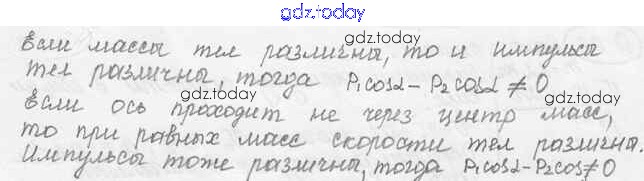 gdz.today
Если массы тел различны, то и импульсы
gdz.today
тел различны, тогда P₁cosα – P₂cosα ≠ 0
gdz.today
Если ось проходит не через центр масс,
gdz.today
то при равных масс скорости тел различны.
gdz.today
Импульсы тоже различны, тогда P₁cosα-P₂cos≠0